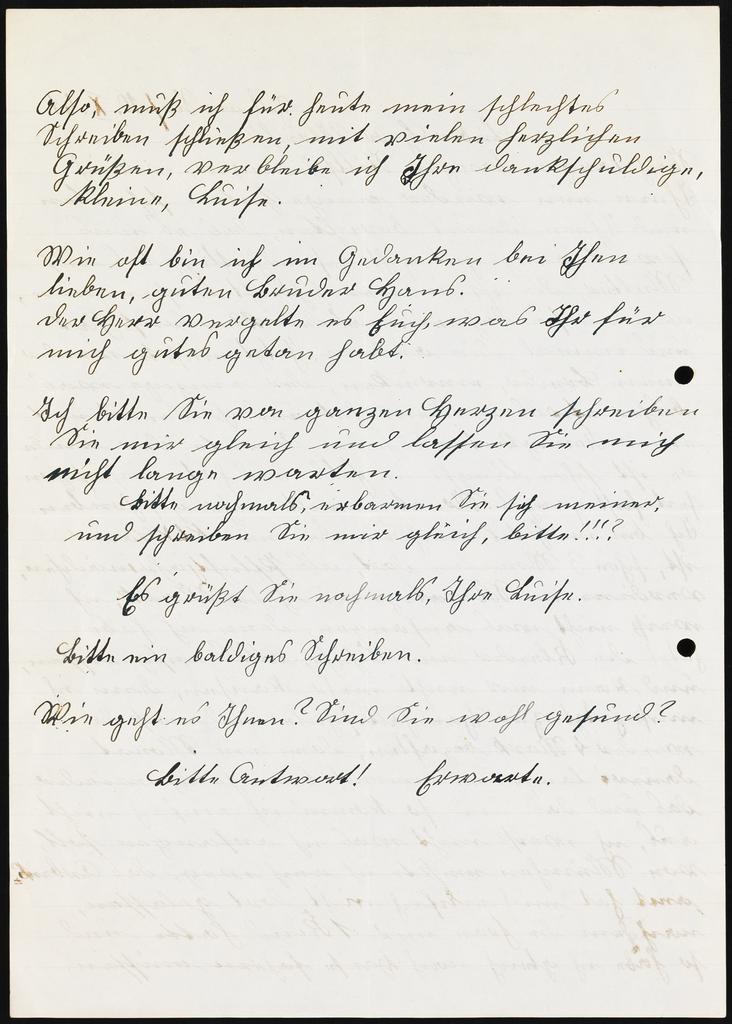 Also, muß ich für heute mein schlechtes
Schreiben schließen, mit vielen herzlichen
Grüßen, verbleibe ich Ihre dankschuldige,
kleine, Luise.
Wie oft bin ich im Gedanken bei Ihen
lieben, guten Bruder Hans.
Der Herr vergelte es Euch, was Ihr für
mich gutes getan habt.
Ich bitte Sie von ganzen Herzen schreiben
Sie mir gleich und lassen Sie mich
nicht lange warten.
Bitte nochmals, erbarmen Sie sich meiner,
und schreiben Sie mir gleich, bitte!!!?
Es grüßt Sie nochmals, Ihre Luise.
Bitte ein baldiges Schreiben.
Wie geht es Ihnen? Sind Sie wohl gesund?
Bitte Antwort! Erwarte.